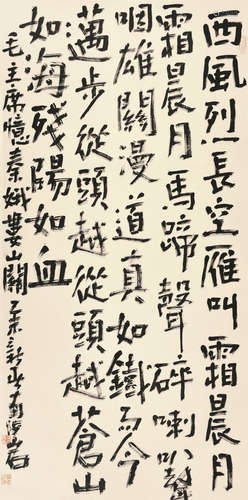 西風烈長空雁叫霜晨月
霜晨月馬蹄聲碎喇叭聲
咽雄關漫道真如鐵而今
邁步從頭越從頭越蒼山
如海殘陽如血
毛主席憶秦娥婁山關乙未